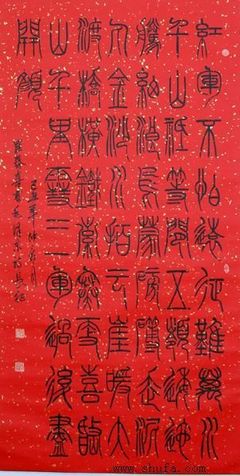 紅軍不怕遠征難萬水
千山祇等閒五嶺逶迤
騰細浪烏蒙磅礴走泥
丸金沙水拍云崖暖大
渡橋橫鐵索寒更喜岷
山千里雪三軍過後盡
開顏
己丑年仲